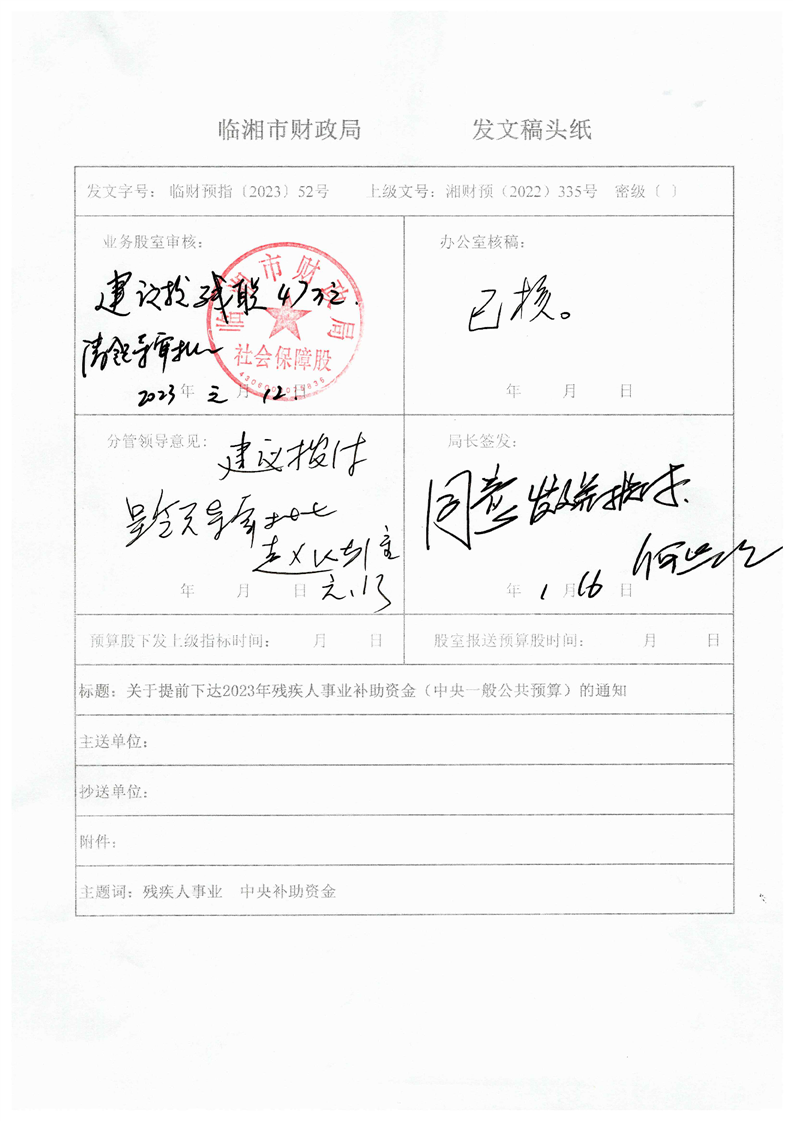 临湘市财政局 发文稿头纸
发文字号： 临财预指〔2023〕52号 上级文号：湘财预（2022）335号 密级〔 〕
业务股室审核：
建议拨残联47万元.
请领导审批
2023年 元月12日
临湘市财政局
社会保障股
办公室核稿：
已核。
年 月 日
分管领导意见：
建议拨付
年 月 日
局长签发：
同意
年 1月16日
预算股下发上级指标时间： 月 日
股室报送预算股时间： 月 日
标题：关于提前下达2023年残疾人事业补助资金（中央一般公共预算）的通知
主送单位：
抄送单位：
附件：
主题词：残疾人事业 中央补助资金